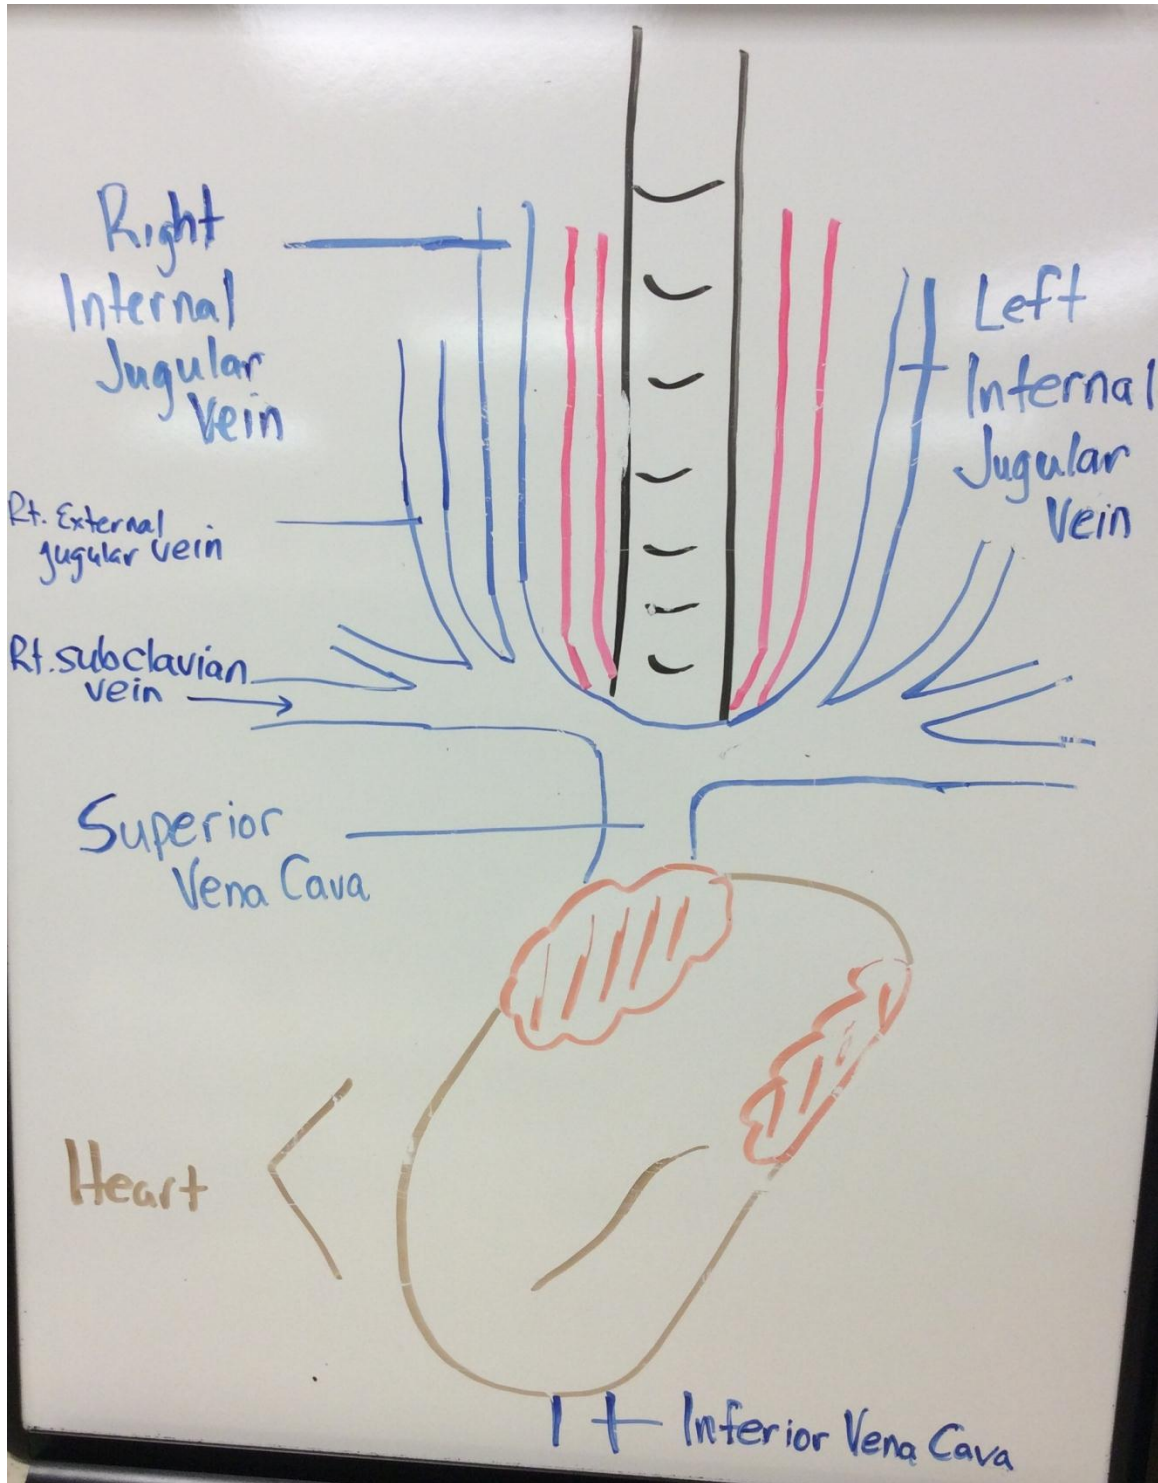 Right
Internal
Jugular
Vein
Left
Internal
Jugular
Vein
Rt. External
jugular vein
Rt. subclavian
vein
Superior
Vena Cava
Heart
Inferior Vena Cava